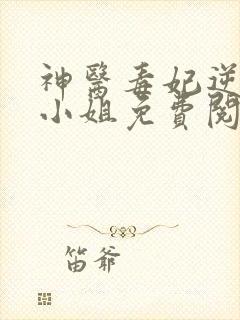 神醫毒妃逆
小姐免費閱
笛爷